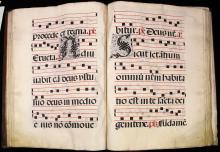 procede et regna. ps.
Eructa
vabit eā deus vultu
suo deus in medio
eius non cōmove
bitur. ps. Deus nr̄. a.
Sicut letantium
omniū nr̄m habita
tio est in te sacta dei
genitrix. ps.